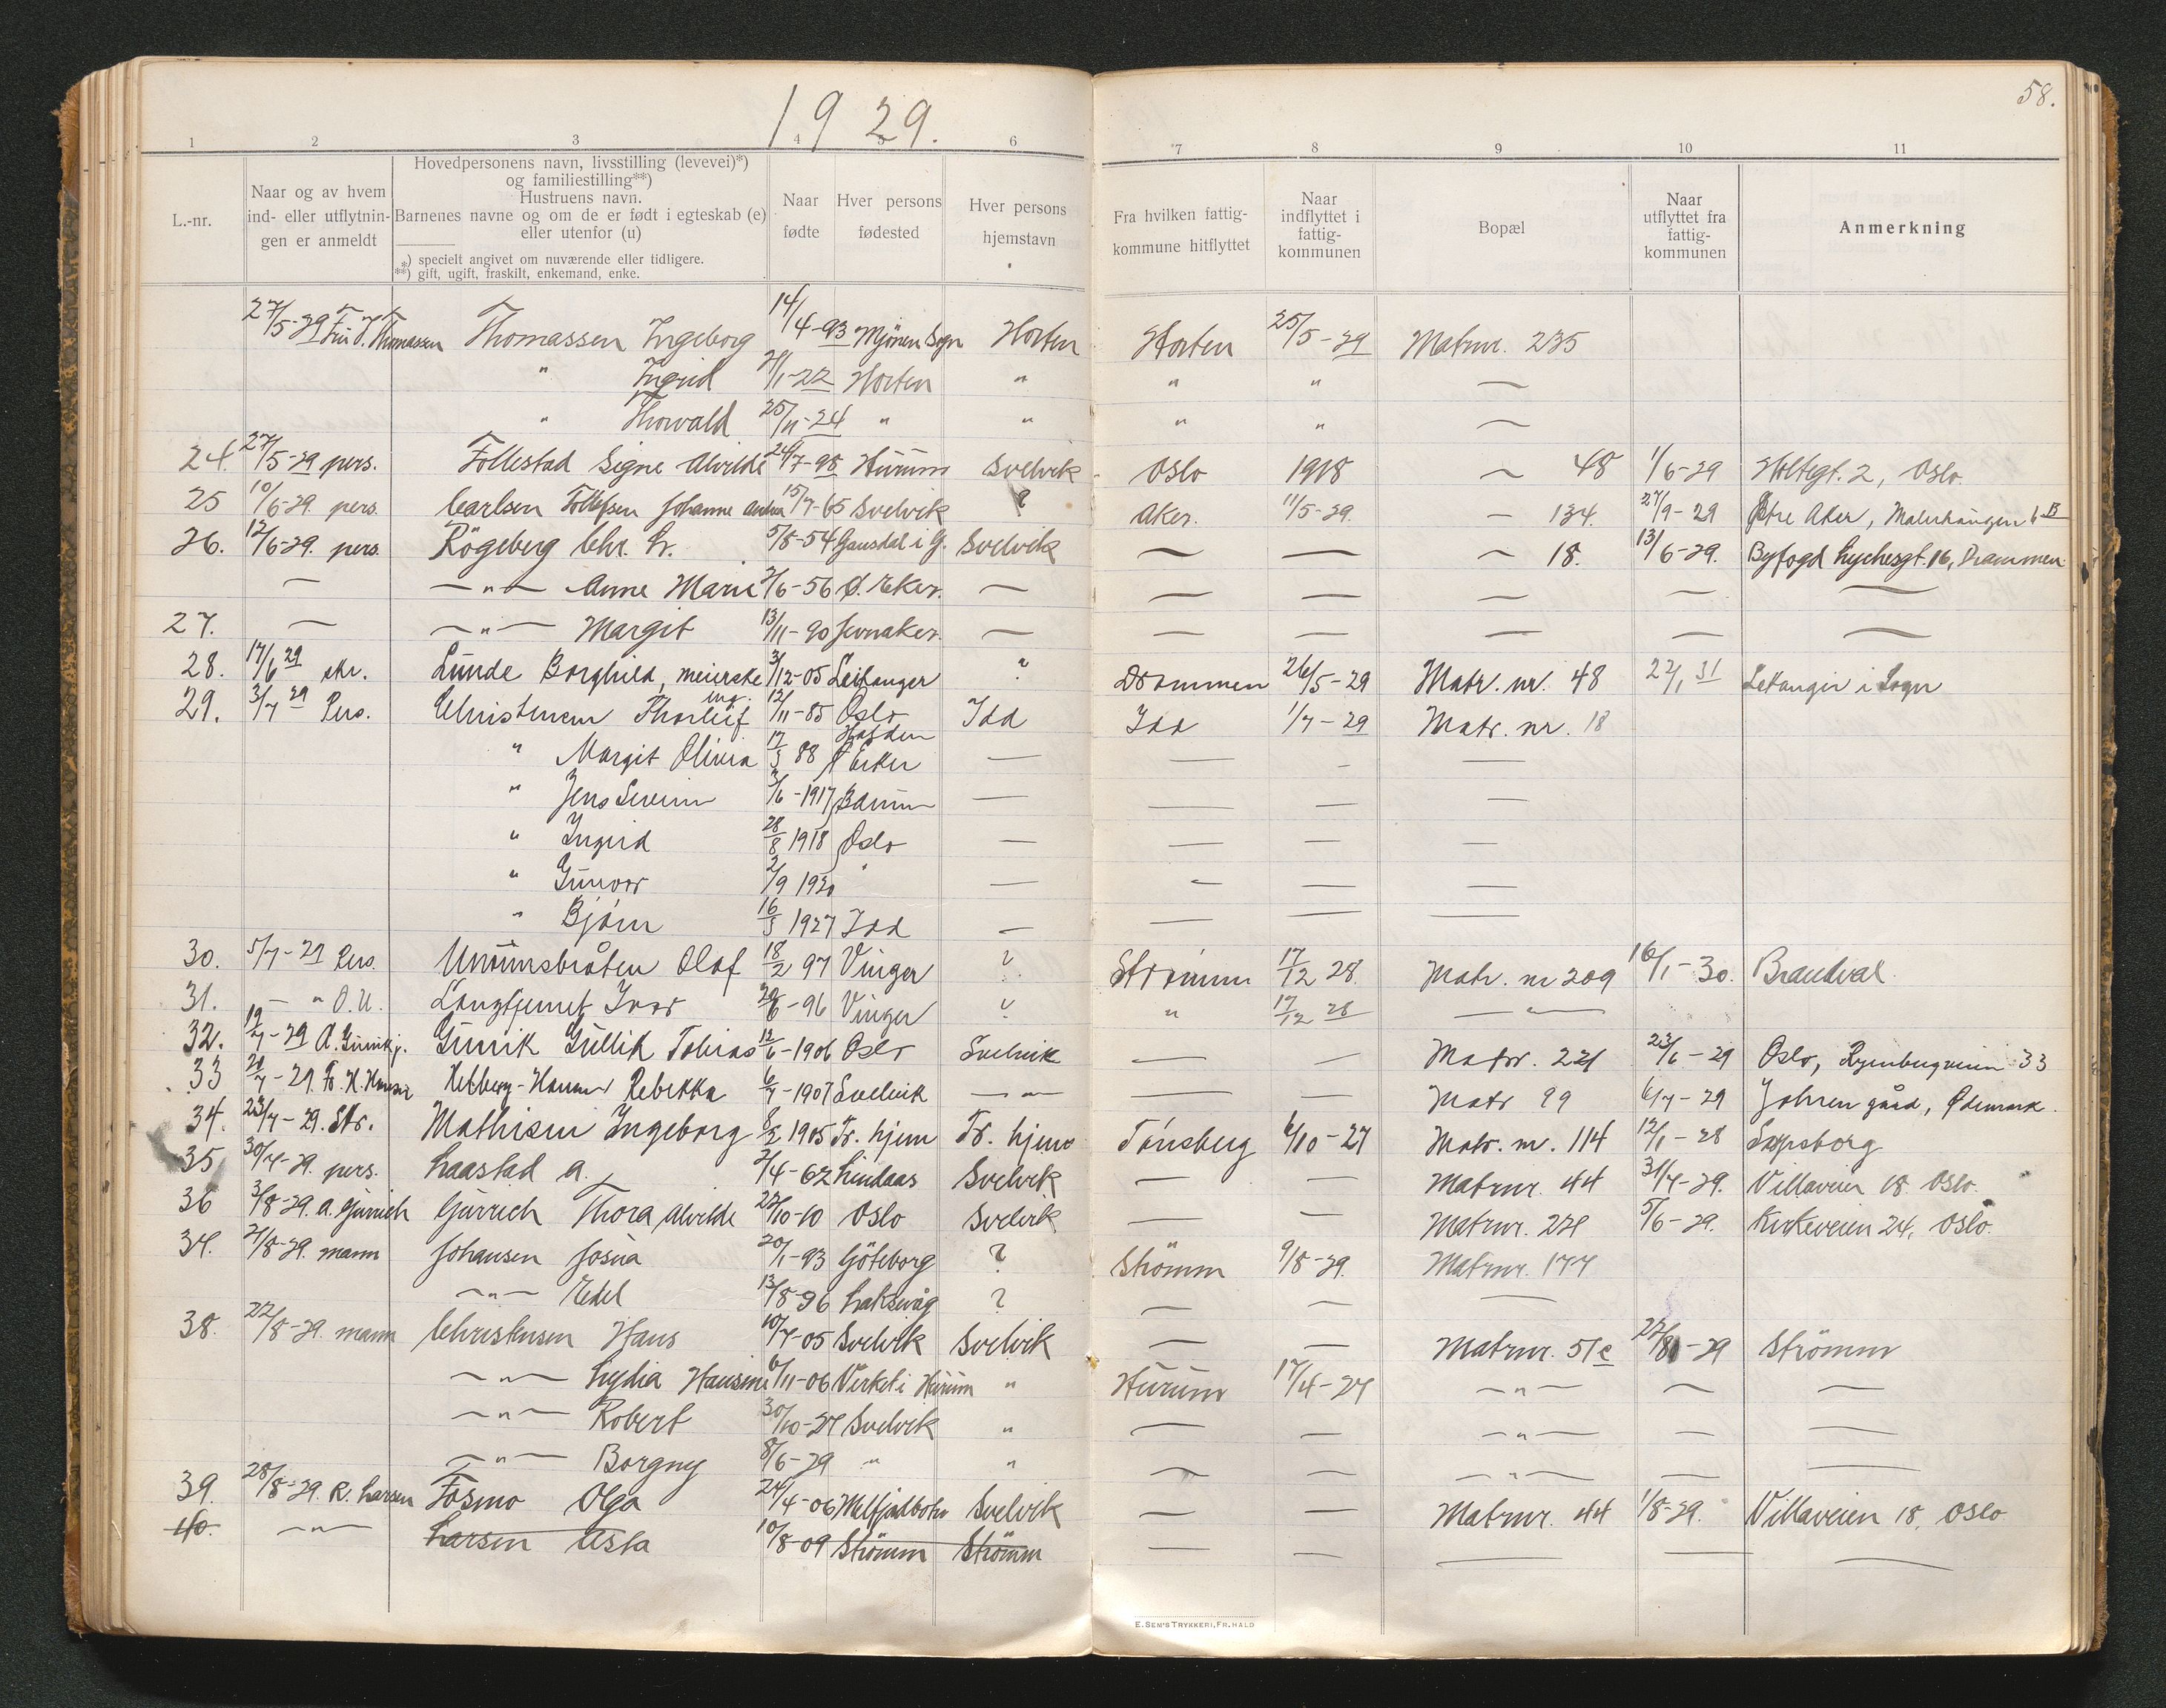 58.
1929.
1 2 3 4 5 6 7 8 9 10 11
L.-nr.
Naar og av hvem
ind- eller utflytnin-
gen er anmeldt
Hovedpersonens navn, livsstilling (levevei)*)
og familiestilling**)
Hustruens navn.
Barnenes navne og om de er født i egteskab (e)
eller utenfor (u)
*) specielt angivet om nuværende eller tidligere.
**) gift, ugift, fraskilt, enkemand, enke.
Naar
fødte
Hver persons
fødested
Hver persons
hjemstavn
Fra hvilken fattig-
kommune hitflyttet
Naar
indflyttet i
fattig-
kommunen
Bopæl
Naar
utflyttet fra
fattig-
kommunen
Anmerkning
27/5-29 Fru J. Thomassen Thomassen Ingeborg 14/4-93 Horten Horten 25/5-29 Matrnr. 235
" Ingrid 22 Horten " " " —
" Thorvald 25/11-24 " " " " —
24. 27/5-29 pers. Follestad Signe Alvilde 24/7-98 Hurum Svelvik Oslo 1918 — 48 1/6-29 Holtegt. 2, Oslo.
25 10/6-29. pers. Carlsen Tollefsen Johanne 15/7-65 Svelvik ? Aker. 11/5-29. — 134. 27/9-29 Aker,
26. 12/6-29. pers. Rögeberg Chr. L. 5/8-54 Gausdal i G. Svelvik — — — 18. 13/6-29. Byfogd Lychesgt. 16, Drammen
— —"— Anne Marie 2/6-56 Ø. Eker. — — — — — —
27. — —"— Margit 13/11-90 Jevnaker. — — — — — —
28. 17/6 29 skr. Lunde Borghild, meierske 3/12-05 Leikanger ? Drammen 26/5-29 Matr. nr. 48 22/1 31 Leikanger i Sogn
29. 3/7 29 Pers. Christensen Thorleif ing. 12/11-85 Oslo Idd Idd 1/7-29 Matr. nr. 18
" Margit Olivia 88 Halden — — - —
" Jens Severin 3/6-1917 Bærum — — — —
" Ingrid 28/8 1918 Oslo — — — —
" Gunvor 2/9 1920 " — — — —
" Bjørn 1927 Idd — — — —
30. 5/7-29 Pers. Olaf 18/2 97 Vinger ? Strömm 17/12 28. Matr. nr 209 16/1-30. Brandval
31. — " O.U. Ivar 96 Vinger ? " 17/12 28 —"—
32. 19/7-29 Gullik Tobias 12/6-1906 Oslo Svelvik — — Matr. 221 23/6-29 Oslo, 33
33 29. Hansen Rebekka 6/7-1907 Svelvik —"— — — Matr 99 6/7-29 gård,
34. 23/7-29. Str. Mathisen Ingeborg 1905 Fr. hjem Fr. hjem Tönsberg 6/10-27 Matr. nr. 114 12/1-28 Sarpsborg
35 30/7-29. pers. Laastad A. 2/4-62 Lindaas Svelvik — — Matrnr. 44 31/7-29. Villaveien 18 Oslo.
36 3/8-29. Thora Alvilde 10 Oslo Svelvik — — Matrnr. 221 5/6-29. Kirkeveien 24, Oslo.
37. 29. mann Johansen Josua 20/1-93 Göteborg ? Strömm 9/8-29. Matrnr. 177
—"— Edel 13/8-96 Laksevåg ? — — —
38. 22/8-29. mann Christensen Hans 10/7-05 Svelvik Svelvik — — Matrnr. 51e 29 Strömm
—"— Lydia 6/11-06 Verket i Hurum " Hurum 17/4-27 —"— — —
—"— Robert 30/10-27 Svelvik " — — —"— — —
—"— Borgny 8/6-29 " " — — —"— — —
39. 28/8-29. R. Larsen Fosmo Olga 24/4-06 Svelvik — — Matrnr. 44 1/8-29. Villaveien 18, Oslo
40. —"— Larsen Asta 10/8-09 Strömm Strömm — — — — —
E. SEM'S TRYKKERI, FR.HALD